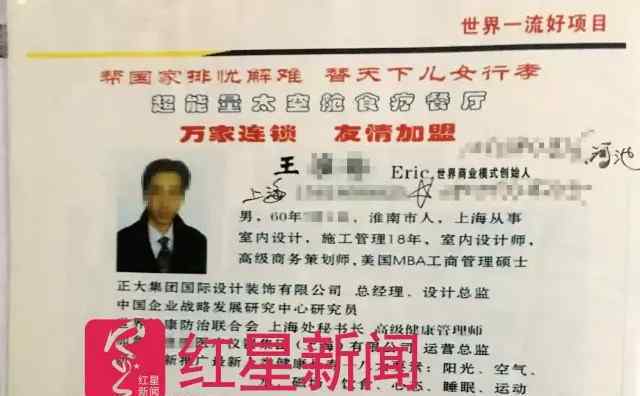 世界一流好项目
帮国家排忧解难 替天下儿女行孝
超能量太空舱食疗餐厅
万家连锁 友情加盟
河池
王 Eric,世界商业模式创始人
上海
男，60年 淮南市人，上海从事
室内设计，施工管理18年，室内设计师，
高级商务策划师，美国MBA工商管理硕士
正大集团国际设计装饰有限公司 总经理、设计总监
中国企业战略发展研究中心研究员
世界 康防治联合会 上海处秘书长 高级健康管理师
有限公司 运营总监
新推广最新 健康 阳光、空气、
饮食、心态、睡眠、运动
红星新闻
红星
新闻